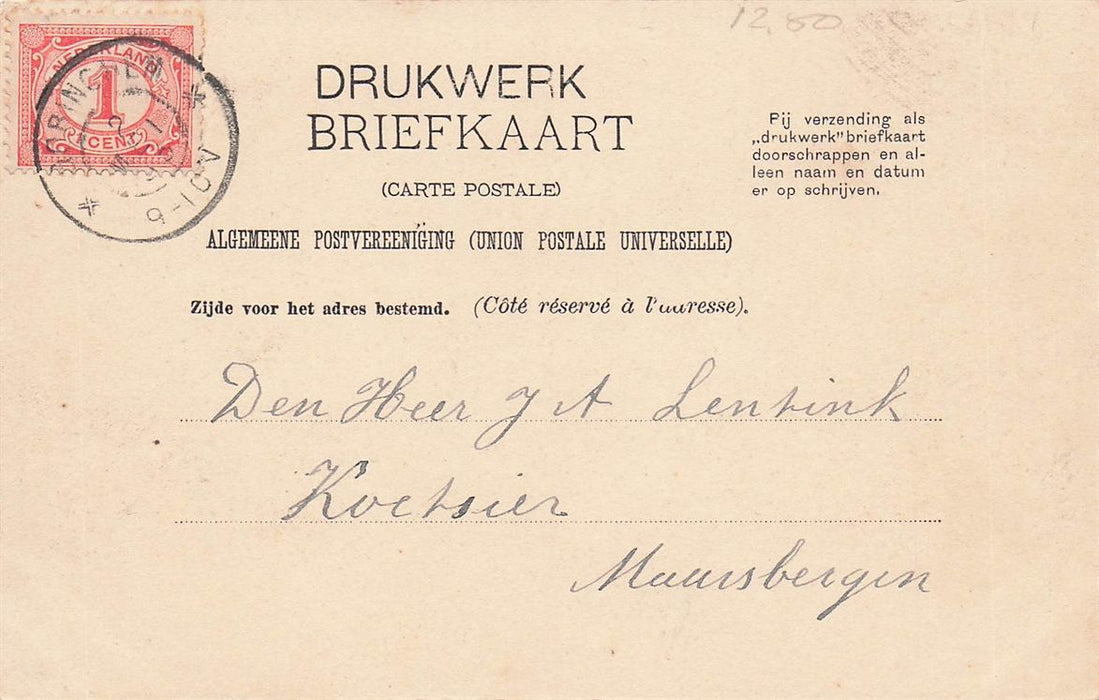 12,80
NEDERLAND
1
CENT
GORINCHEM
9-10V
DRUKWERK
BRIEFKAART
(CARTE POSTALE)
Pij verzending als
„drukwerk" briefkaart
doorschrappen en al-
leen naam en datum
er op schrijven.
ALGEMEENE POSTVEREENIGING (UNION POSTALE UNIVERSELLE)
Zijde voor het adres bestemd. (Côté réservé à l'adresse).
Den Heer J A Lentink
Koetsier
Maarsbergen